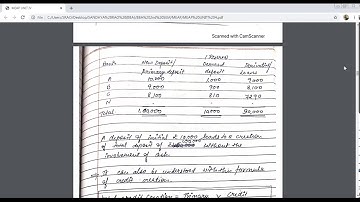 Scanned with CamScanner
(Rupees)
Bank New Deposit/ Demand Derivative/
Primary deposit deposit Loans
A 10,000 1,000 9,000
B 9,000 900 8,100
C 8,100 810 7290
N
Total 1,00,000 10,000 90,000
A deposit of initial ₹ 10,000 leads to a creation
of total deposit of 100,000 without the
involvement of cash.
It can also be understood with the formula
of credit creation.
credit creation = Primary × Credit